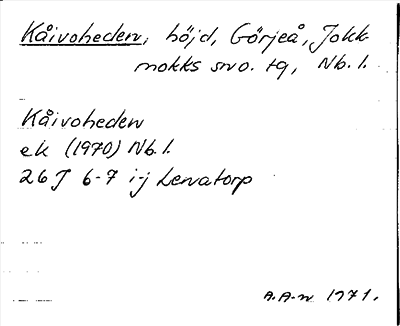 Kåivoheden, höjd, Görjeå, Jokk-
mokks sno. tg, Nb. l.
Kåivoheden
ek (1970) Nb. l.
26 J 6-7 i-j Levatorp
A. A-n 1971.